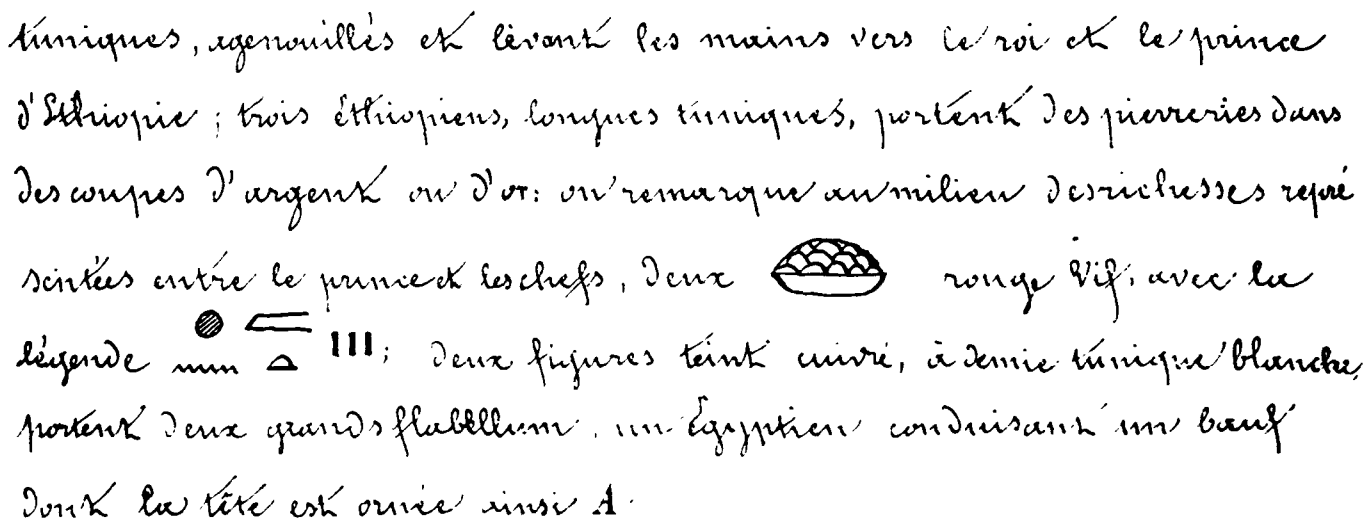 tuniques, agenouillés et levant les mains vers le roi et le prince
d'Ethiopie ; trois éthiopiens, longues tuniques, portent des pierreries dans
des coupes d'argent ou d'or : on remarque au milieu des richesses repré
sentées entre le prince et les chefs, deux rouge vif, avec la
légende ; deux figures teint cuivré, à demie tunique blanche,
portent deux grands flabellum, un Égyptien conduisant un bœuf
dont la tête est ornée ainsi A.